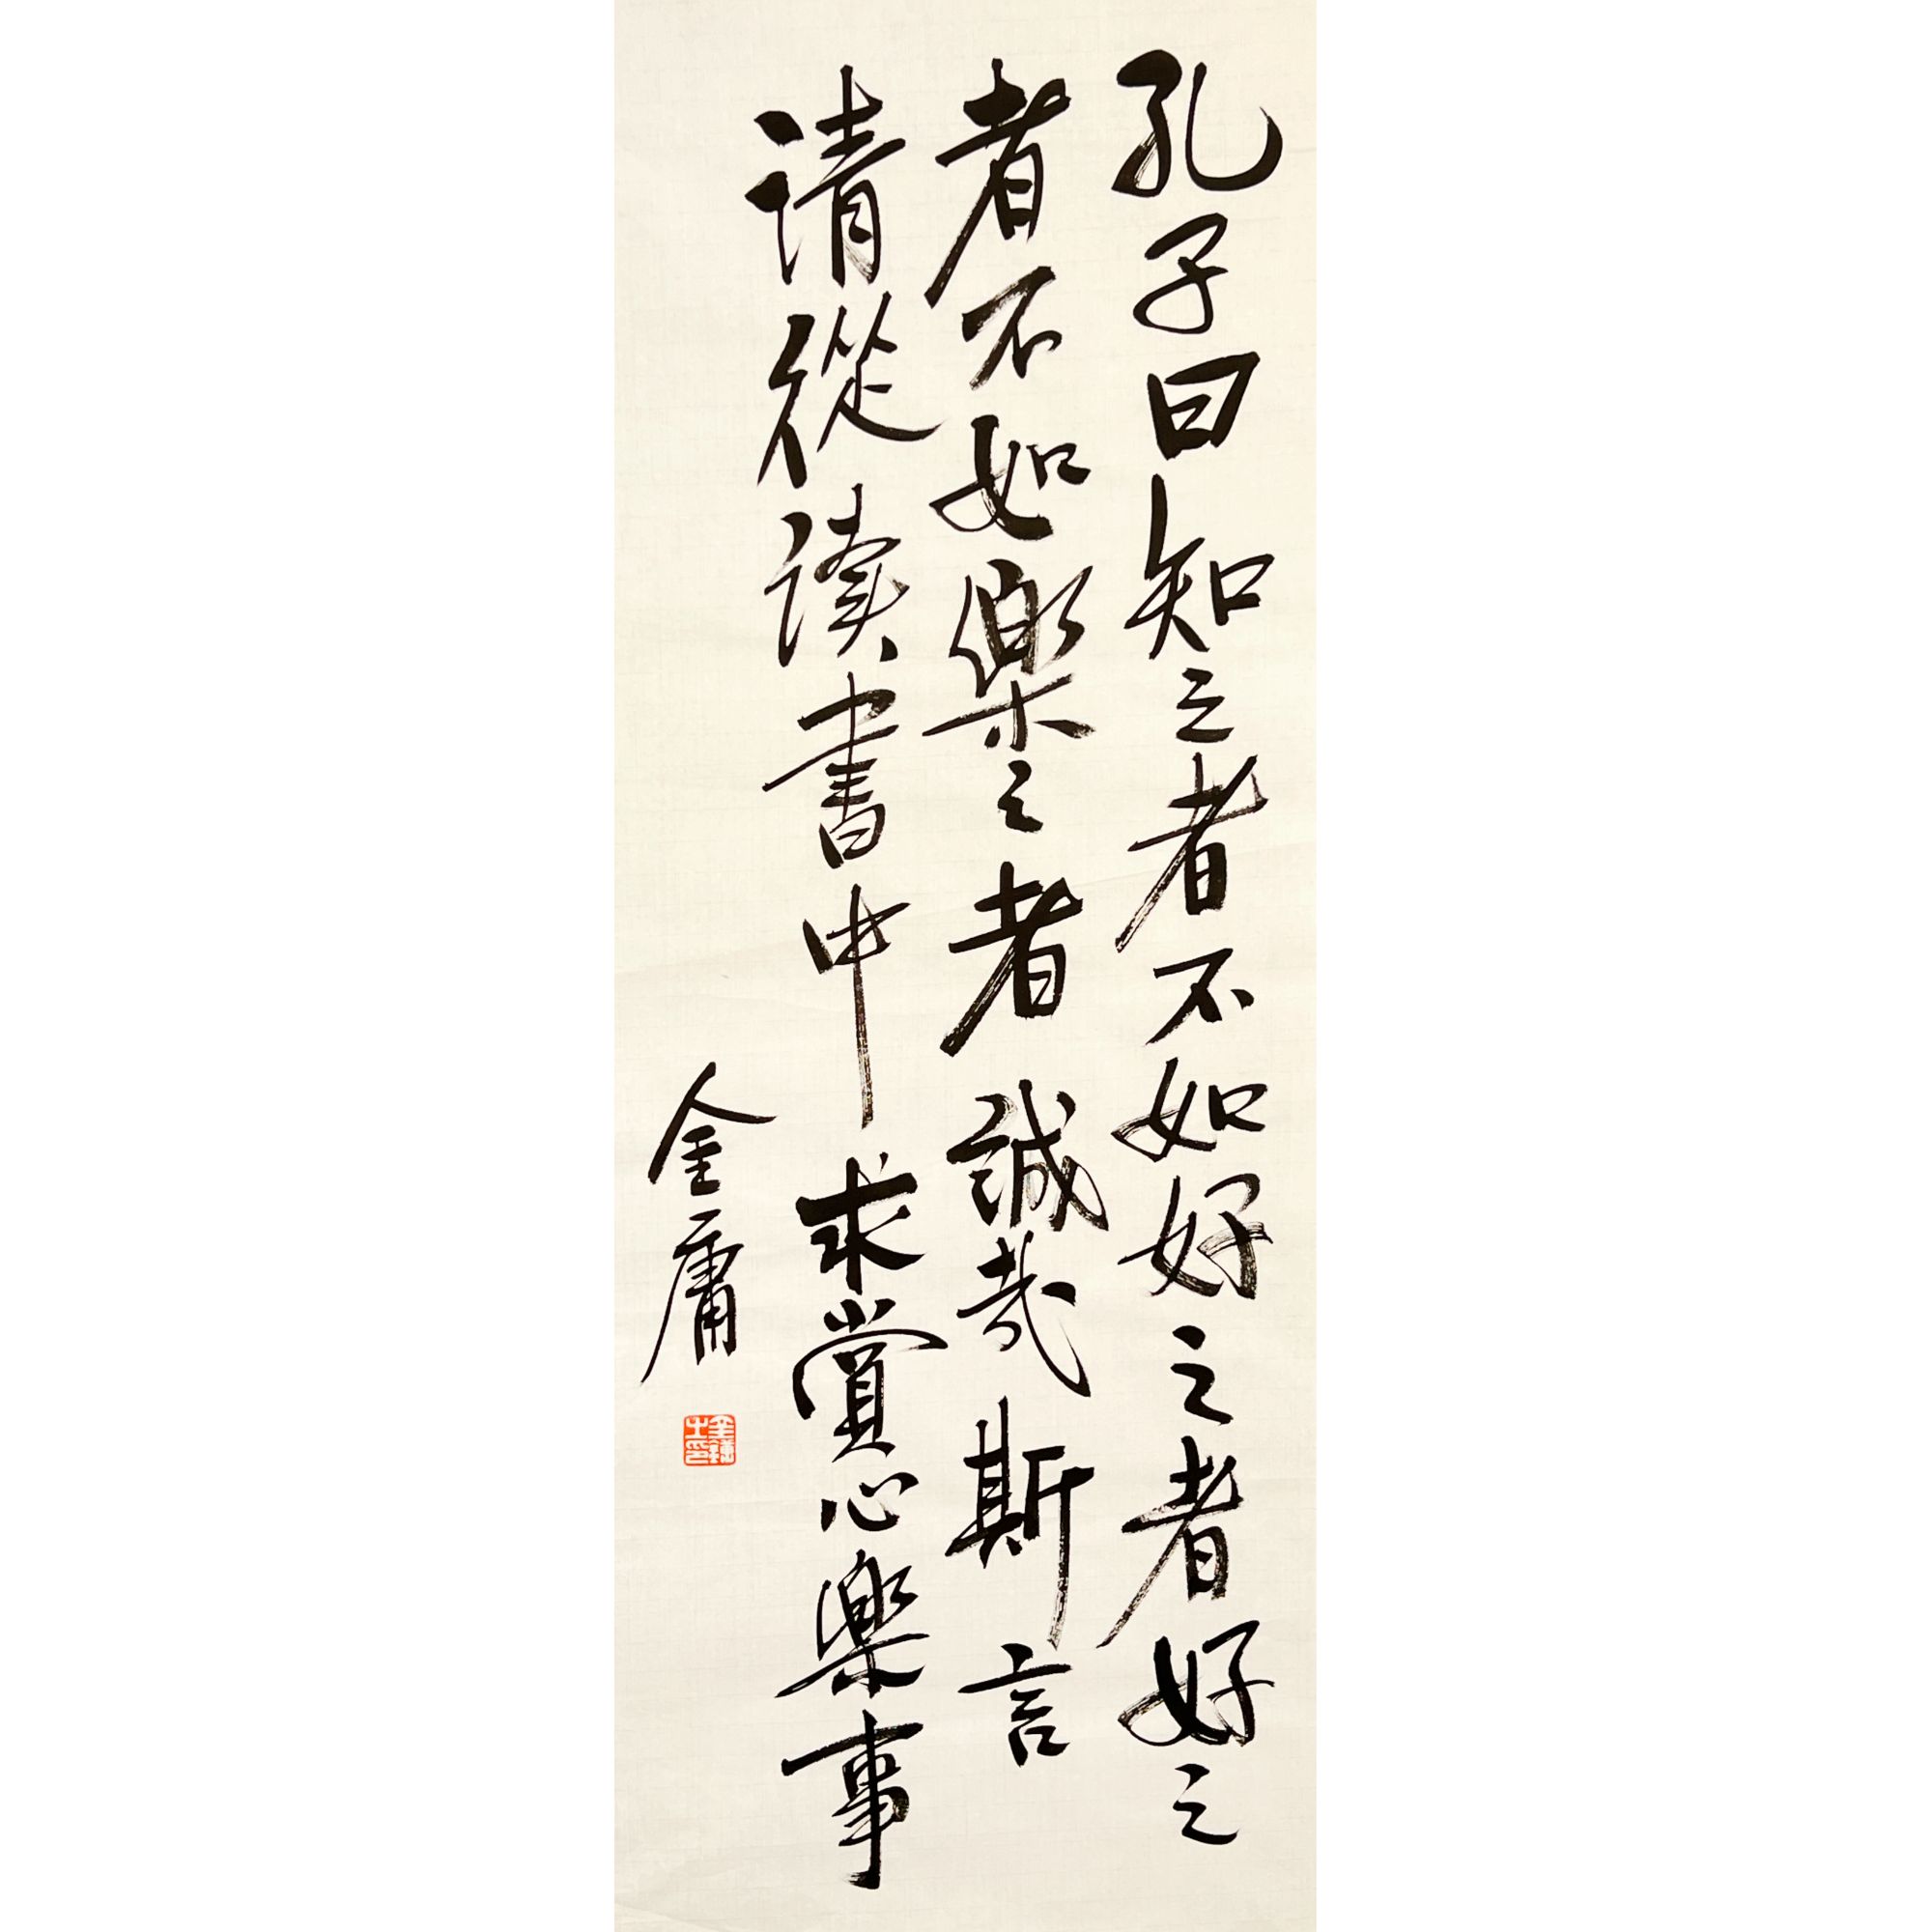 孔子曰知之者不如好之者好之
者不如樂之者誠哉斯言
请從读書中求賞心樂事
金庸